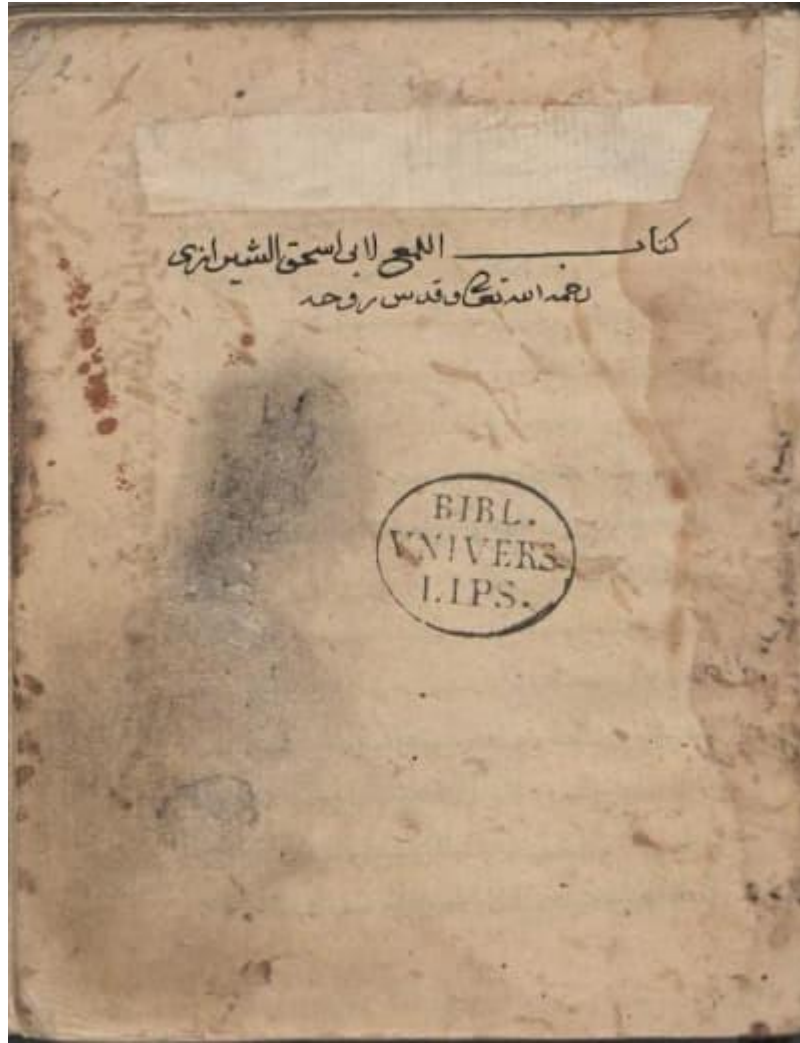 كتاب اللمع لابى اسحق الشيرازى
رحمه الله تعالى وقدس روحه
BIBL.
VNIVERS
LIPS.